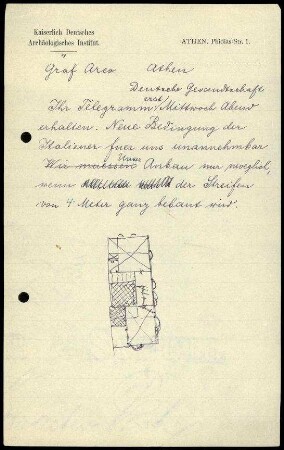 Kaiserlich Deutsches
Archäologisches Institut.
ATHEN, Phidias-Str. 1.
Graf Arco Athen
Deutsche Gesandtschaft
Ihr Telegramm erst Mittwoch Abend
erhalten. Neue Bedingung der
Italiener fuer uns unannehmbar
Wir muessen Unser Anbau nur moeglich,
wenn der Streifen
von 4 Meter ganz bebaut wird.